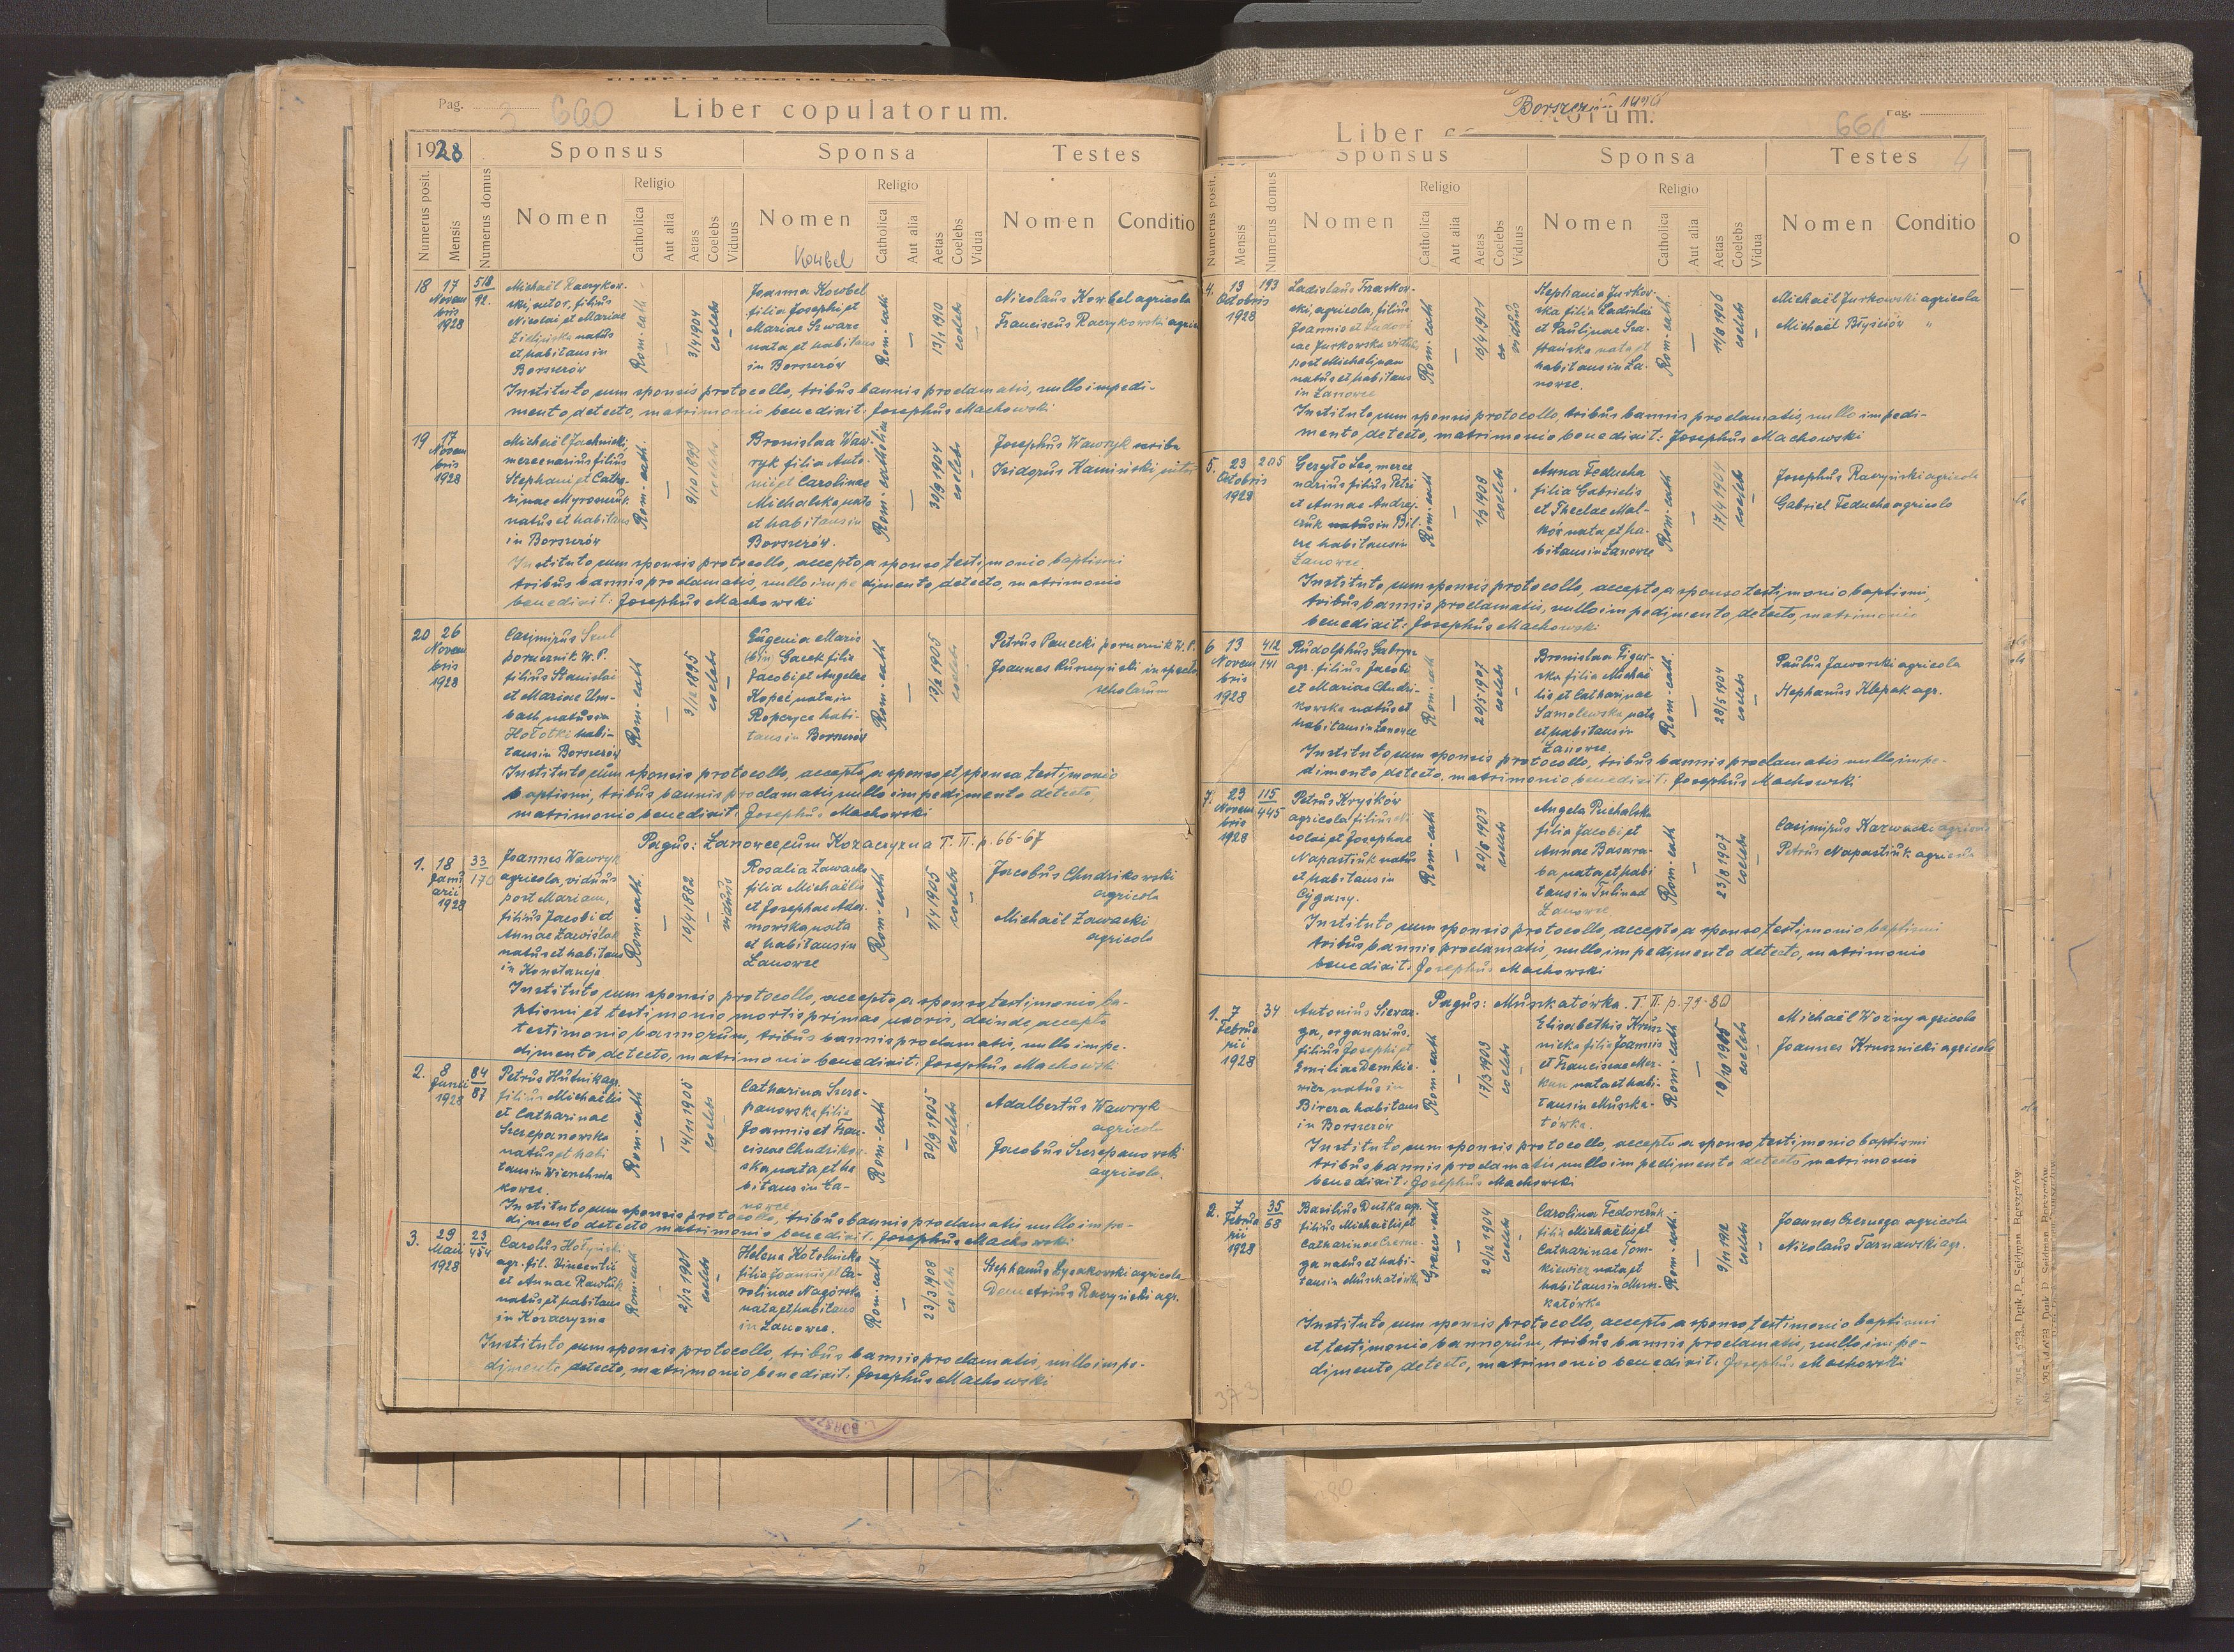 Pag. 3 660 Liber copulatorum.
1928 Sponsus Sponsa Testes
Numerus posit. Mensis Numerus domus Nomen Religio Catholica Aut alia Aetas Coelebs Viduus Nomen Religio Catholica Aut alia Aetas Coelebs Vidua Nomen Conditio
Kowbel
18 17 Novembris 1928 518/92.
Michaël Raczykow-
ski, sutor, filius
Nicolai et Mariae
natus
et habitans in
Borszczów
Rom-cath - 3/4 1904 coelebs -
Joanna Kowbel
filia Josephi et
Mariae Szwarc
nata et habitans
in Borszczów
Rom-cath - 13/1 1910 coelebs -
Nicolaus Kowbel agricola
Franciscus Raczykowski
Instituto cum sponsis protocollo, tribus bannis proclamatis, nullo impedi-
mento detecto, matrimonio benedixit: Josephus Machowski
19 17 Novembris 1928
Michaël Jachnicki
mercenarius filius
Stephani et Catha-
rinae
natus et habitans
in Borszczów
Rom-cath. - 9/10 1899 coelebs
Bronislaa Waw-
ryk filia Anto-
nii et Carolinae
Michalska nata
et habitans in
Borszczów.
Rom-catholica - 30/9 1904 coelebs -
Josephus Wawryk scriba
Isidorus Kamiński
Instituto cum sponsis protocollo, accepto a sponso testimonio baptismi
tribus bannis proclamatis, nullo impedimento detecto, matrimonio
benedixit: Josephus Machowski
20 26 Novembris 1928
Casimirus Szul
porucznik W.P.
filius Stanislai
et Mariae Um-
bach natus in
Hołotki habi-
tans in Borszczów
Rom-cath - 3/12 1895 coelebs -
Eugenia Maria
(bin) Gacek filia
Jacobi et Angelae
Kopeć nata in
Ropczyce habi-
tans in Borszczów
Rom-cath - 13/2 1905 coelebs
Petrus Panecki porucznik W.P.
Joannes inspector
scholarum
Instituto cum sponsis protocollo, accepto a sponso et sponsa testimonio
baptismi, tribus bannis proclamatis nullo impedimento detecto,
matrimonio benedixit: Josephus Machowski
Pagus: Łanowce cum Kozaczyzna T. II. p. 66-67
1. 18 Januarii 1928 33/170
Joannes Wawryk
agricola, viduus
post Mariam,
filius Jacobi et
Annae Zawiślak
natus et habitans
in Konstancja
Rom-cath. - 10/4 1882 - viduus
Rosalia Zawacka
filia Michaëlis
et Josephae Ada-
morska nata
et habitans in
Łanowce
Rom-cath - 1/4 1905 coelebs -
Jacobus Chudzikowski
agricola
Michaël Zawacki
agricola
Instituto cum sponsis protocollo, accepto a sponso testimonio ba-
ptismi et testimonio mortis primae uxoris, deinde accepto
testimonio bannorum, tribus bannis proclamatis, nullo impe-
dimento detecto, matrimonio benedixit: Josephus Machowski
2. 8 Junii 1928 84/87
Petrus Hutnik agr.
filius Michaëlis
et Catharinae
Szczepanowska
natus et habi
tans in Wierzchnia
kowce.
Rom-cath - 14/11 1905 coelebs
Catharina Szcze-
panowska filia
Joannis et Fran-
ciscae Chudzikow-
ska nata et ha
bitans in Ła-
nowce.
Rom-cath - 30/9 1905 coelebs
Adalbertus Wawryk
agricola
Jacobus Szczepanowski
agricola.
Instituto cum sponsis protocollo, tribus bannis proclamatis nullo impe-
dimento detecto matrimonio benedixit: Josephus Machowski
3. 29 1928 23/454
Carolus Hołyński
agr. fil. Vincentii
et Annae Rawluk
natus et habitans
in Kozaczyzna
Rom-cath 2/12 1901 coelebs
Helena Kotelnicka
filia Joannis et Ca-
rolinae Nagórska
nata et habitans
in Łanowce.
Rom-cath - 23/3 1908 coelebs
Stephanus Łysakowski agricola
Demetrius Raczyński agr.
Instituto cum sponsis protocollo, tribus bannis proclamatis, nullo impe-
dimento detecto, matrimonio benedixit: Josephus Machowski
Borszczów
Liber
orum. 661 Pag.
Sponsus Sponsa Testes 4
Numerus posit. Mensis Numerus domus Nomen Religio Catholica Aut alia Aetas Coelebs Viduus Nomen Religio Catholica Aut alia Aetas Coelebs Vidua Nomen Conditio
4. 13 Octobris 1928 193
Ladislaus
ski, agricola, filius
Joannis et Ludovi
cae Jurkowska viduus
post Michalinam
natus et habitans
in Łanowce
Rom-cath - 10/4 1901 viduus
Stephania Jurkow-
ska filia Ladislai
et Paulinae
nata et
habitans in Ła-
nowce.
Rom-cath. - 11/8 1906 coelebs -
Michaël Jurkowski agricola
Michaël "
Instituto cum sponsis protocollo, tribus bannis proclamatis, nullo impedi-
mento detecto, matrimonio benedixit: Josephus Machowski
5. 23 Octobris 1928 205
Gezyło Leo, merce
narius filius Petri
et Annae Andrej-
czuk natus in Bil-
cze habitans in
Łanowce
Rom-cath - 1/3 1908 coelebs
Anna Feducha
filia Gabrielis
et Theclae Mal-
ków nata et ha-
bitans in Łanowce
Rom-cath - 17/4 1904 coelebs
Josephus Raczyński agricola
Gabriel Feducha agricola
Instituto cum sponsis protocollo, accepto a sponso testimonio baptismi,
tribus bannis proclamatis, nullo impedimento detecto, matrimonio
benedixit: Josephus Machowski
6 13 Novembris 1928 412/141
Rudolphus Gabrysz
agr. filius Jacobi
et Mariae Chudzi-
kowska natus et
habitans in Łanowce
Rom-cath - 20/5 1907 coelebs -
Bronislaa Figur-
ska filia Michaë
lis et Catharinae
Samolewska nata
et habitans in
Łanowce.
Rom-cath. - 28/5 1904 coelebs -
Paulus Jaworski agricola
Stephanus Klepak agr.
Instituto cum sponsis protocollo, tribus bannis proclamatis nullo impe-
dimento detecto, matrimonio benedixit: Josephus Machowski
7. 29 Novembris 1928 115/445
Petrus Kryśków
agricola filius Ni
colai et Josephae
Napastiuk natus
et habitans in
Cygany.
Rom-cath - 20/6 1903 coelebs
Angela Puchalska
filia Jacobi et
Annae Basara-
ba nata et habi
tans in Tulin ad
Łanowce
Rom-cath - 23/8 1907 coelebs -
Casimirus Karwacki agricola
Petrus Napastiuk agricola
Instituto cum sponsis protocollo, accepto a sponso testimonio baptismi
tribus bannis proclamatis, nullo impedimento detecto, matrimonio
benedixit: Josephus Machowski
Pagus: Muszkatówka. T. II. p. 79-80
1. 7 Februarii 1928 34
Antonius Sieraz-
ga, organarius.
filius Josephi et
Emiliae Demkie-
wicz natus in
habitans
in Borszczów
Rom-cath - 17/3 1903 coelebs -
Elisabethis Krusz
nicka filia Joannis
et Franciscae
nata et habi-
tans in Muszka-
tówka.
Rom-cath - 19/10 1905 coelebs
Michaël Woźny agricola
Joannes Krusznicki agricola
Instituto cum sponsis protocollo, accepto a sponso testimonio baptismi
tribus bannis proclamatis nullo impedimento detecto matrimonio
benedixit: Josephus Machowski
2. 7 Februarii 1928 35/68
Basilius Dutka agr.
filius Michaëlis et
Catharinae Czerne-
ga natus et habi-
tans in Muszkatówka
Graeco-cath - 20/12 1904 coelebs
Carolina Fedorczuk
filia Michaëlis et
Catharinae Tom-
kiewicz nata et
habitans in Musz-
katówka
Rom-cath. - 9/11 1912 coelebs -
Joannes Czernega agricola
Nicolaus Tarnawski agr.
Instituto cum sponsis protocollo, accepto a sponso testimonio baptismi
et testimonio bannorum, tribus bannis proclamatis, nullo impe-
dimento detecto, matrimonio benedixit: Josephus Machowski
373
80